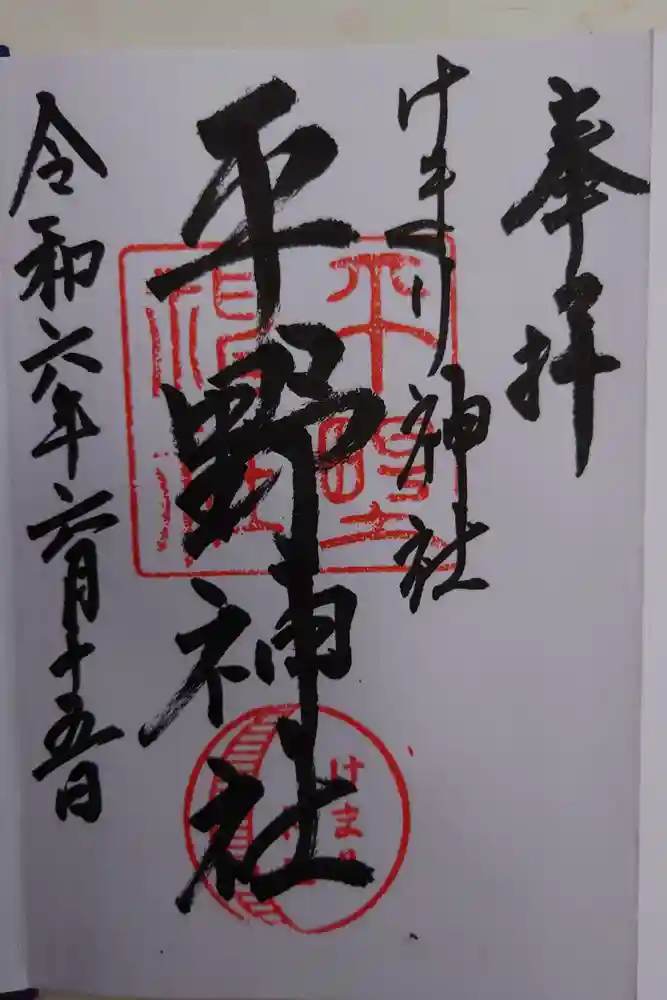 奉拝
けまり神社
平野神社
令和六年六月十五日
平野
神社
けま